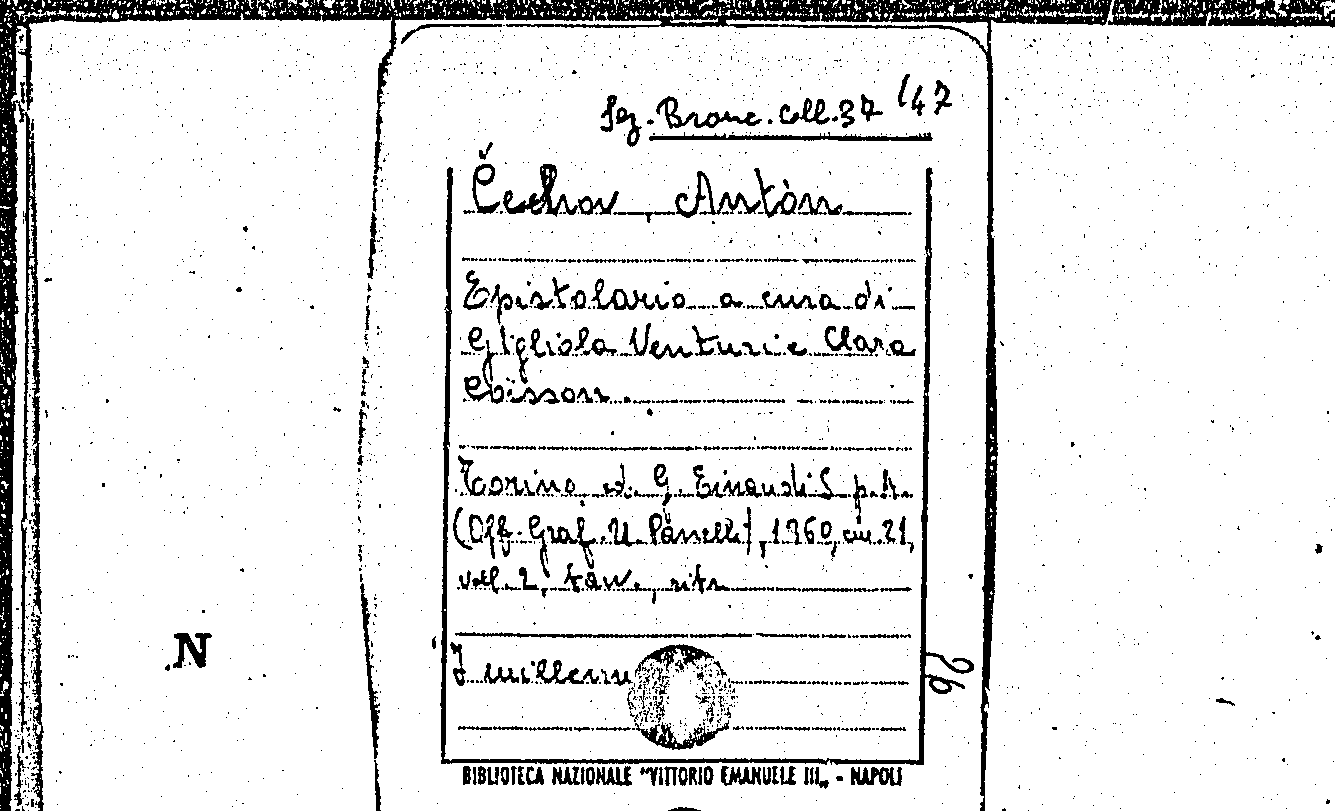 Sez. Branc. Coll. 37 /47
Čechov, Antòn
Epistolario a cura di
Gigliola Venturi e Clara
Coïsson.
Torino, ed. G. Einaudi S. p. A.
(Off. Graf. U. Panelli), 1960, cm. 21,
voll. 2, tavv., ritr.
I millenni
26
N
BIBLIOTECA NAZIONALE "VITTORIO EMANUELE III„ - NAPOLI